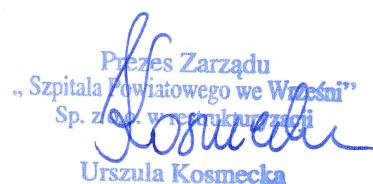 Prezes Zarządu
„ Szpitala Powiatowego we Wrześni”
Sp. z o.o. w restrukturyzacji
Kosmecka
Urszula Kosmecka